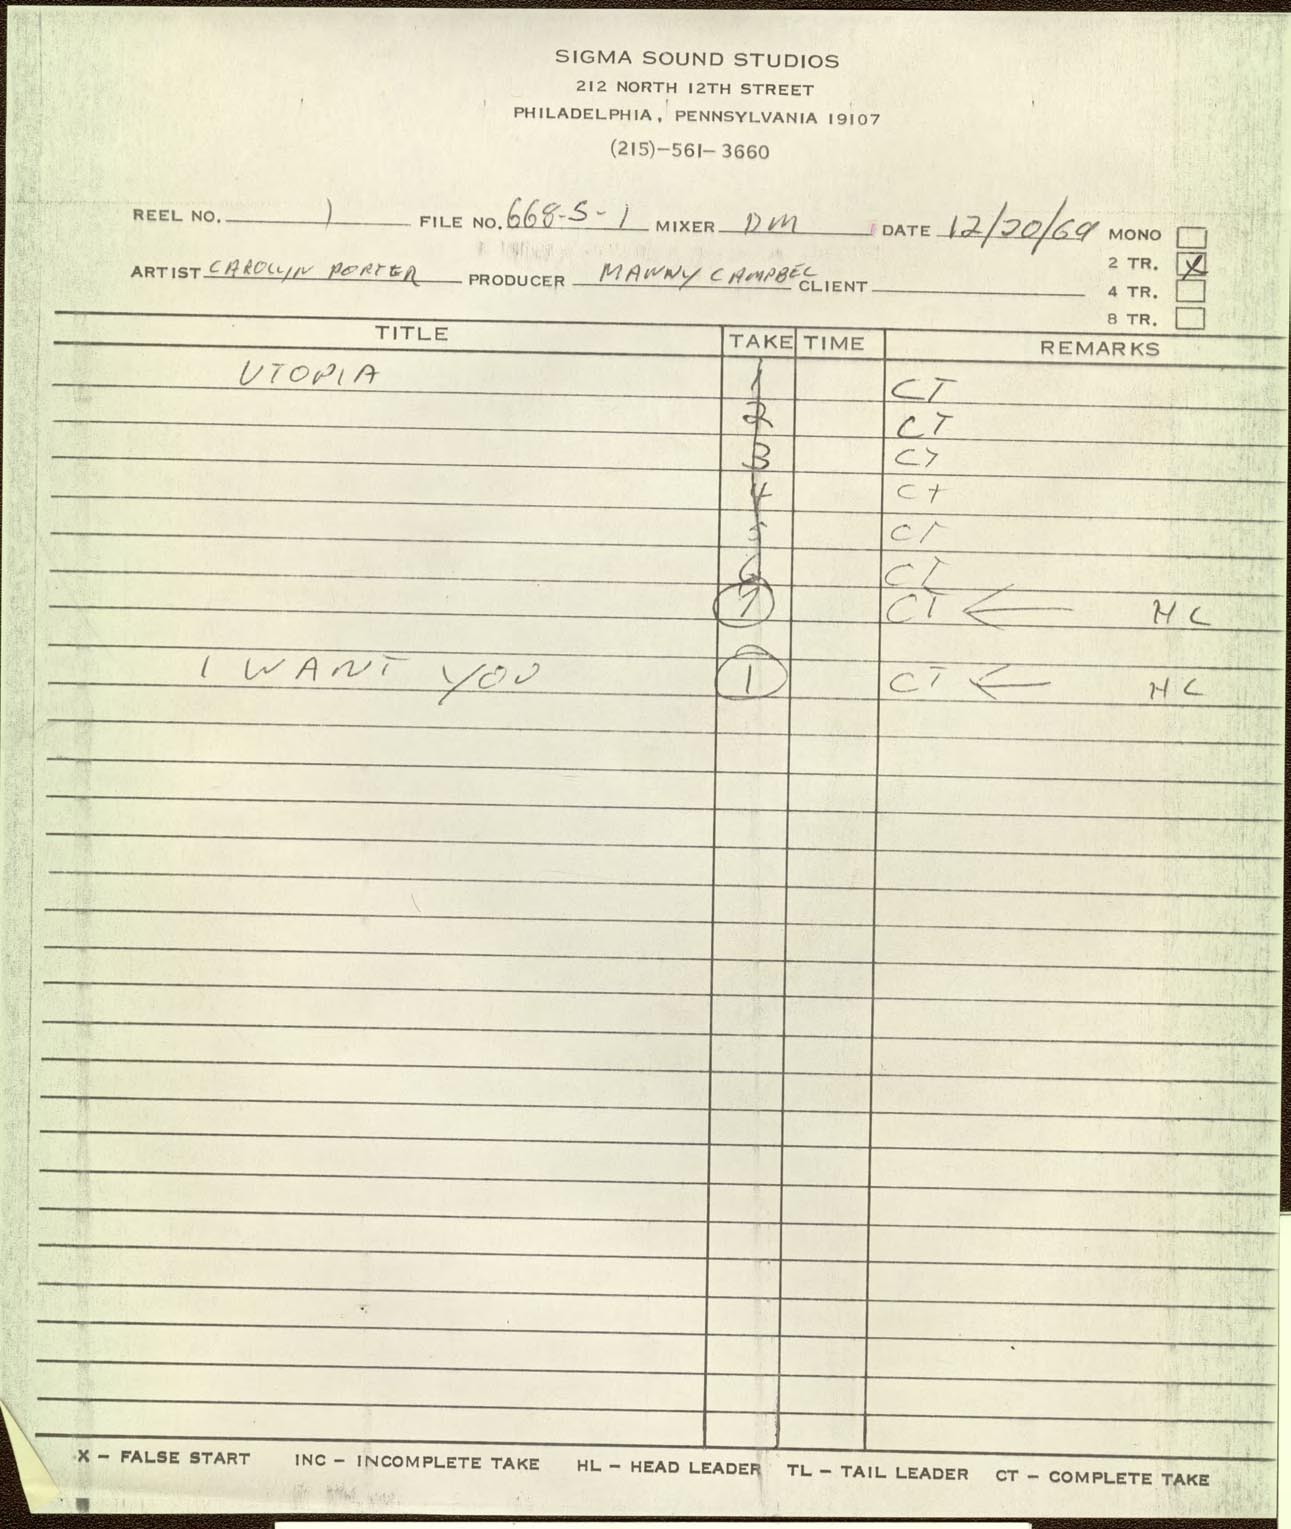 SIGMA SOUND STUDIOS
212 NORTH 12TH STREET
PHILADELPHIA, PENNSYLVANIA 19107
(215)-561-3660
REEL NO. 1 FILE NO. 668-S-1 MIXER DM DATE 12/20/69 MONO
2 TR. X
ARTIST CAROLYN PORTER PRODUCER MANNY CAMPBEL CLIENT
4 TR.
8 TR.
TITLE TAKE TIME REMARKS
UTOPIA 1 CT
2 CT
3 CT
4 CT
5 CT
6 CT
7 CT ← HL
I WANT YOU 1 CT ← HL
X - FALSE START INC - INCOMPLETE TAKE HL - HEAD LEADER TL - TAIL LEADER CT - COMPLETE TAKE